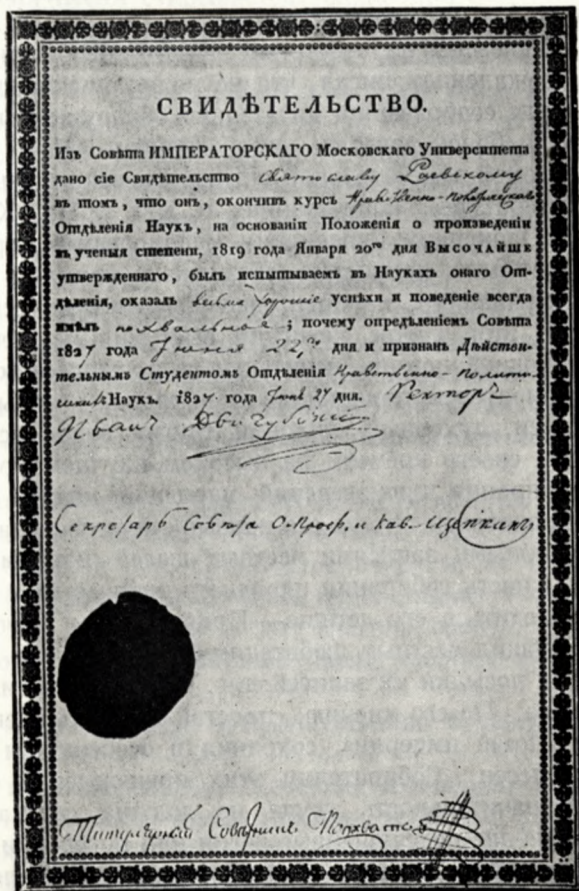 СВИДѢТЕЛЬСТВО.
Изъ Совѣта ИМПЕРАТОРСКАГО Московскаго Университета
дано сіе Свидѣтельство Святославу Раевскому
въ томъ, что онъ, окончивъ курсъ Нравственно-Политическаго
Отдѣленія Наукъ, на основаніи Положенія о произведеніи
въ ученыя степени, 1819 года Января 20го дня ВЫСОЧАЙШЕ
утвержденнаго, былъ испытываемъ въ Наукахъ онаго От-
дѣленія, оказалъ весьма хорошіе успѣхи и поведеніе всегда
имѣлъ похвальное; почему опредѣленіемъ Совѣта
1827 года Іюня 22го дня и признанъ Дѣйствен-
тельнымъ Студентомъ Отдѣленія Нравственно-полити-
ческихъ Наукъ. 1827 года Іюня 27 дня. Ректоръ
Иванъ Двигубскій
Секретарь Совѣта О. Проф. и Кав. Щепкинъ
Титулярный Совѣтникъ